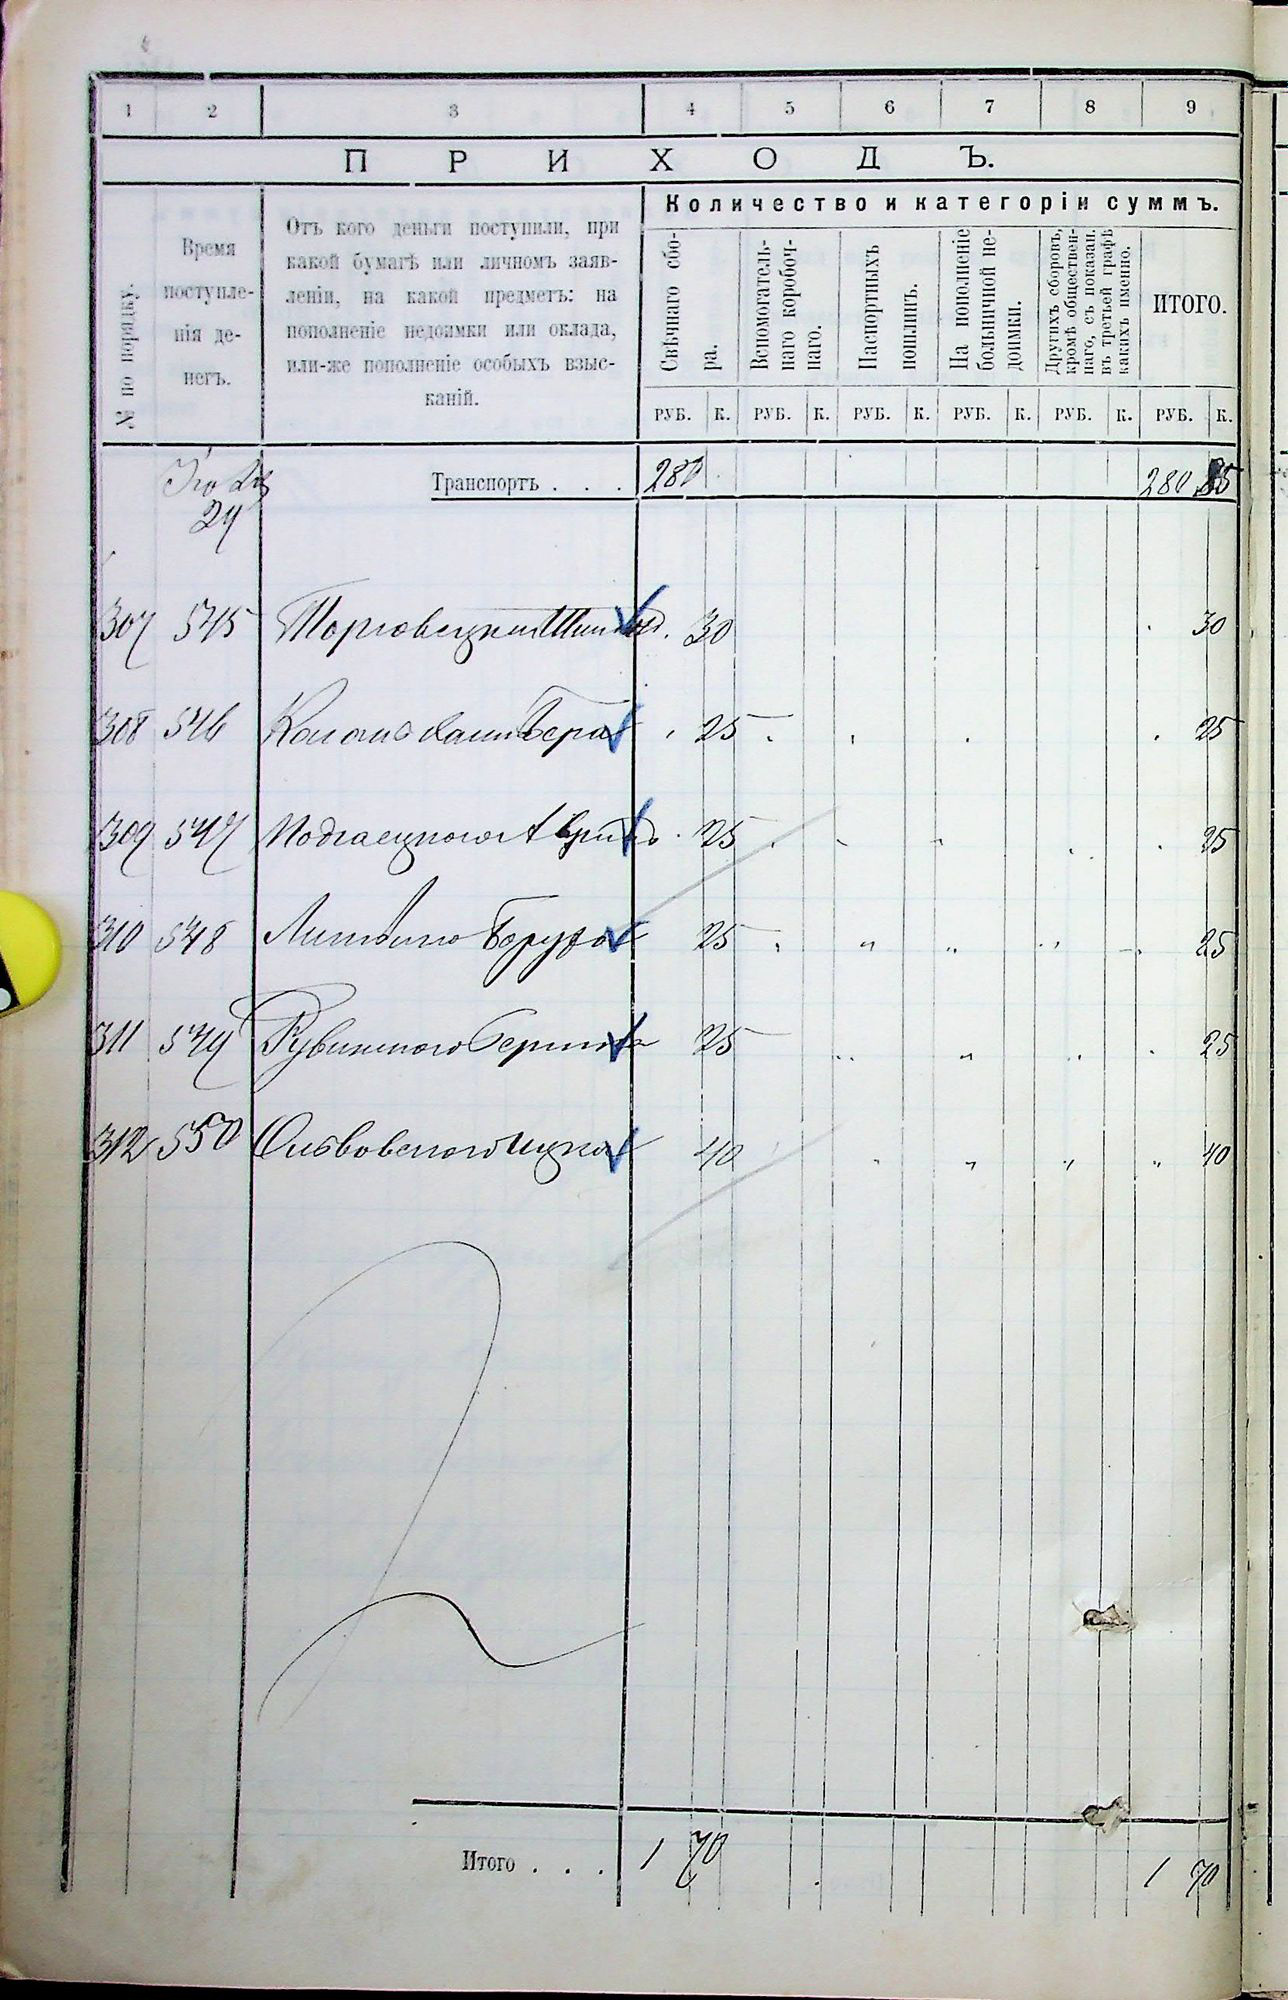 1 2 3 4 5 6 7 8 9
ПРИХОДЪ.
№ по порядку.
Время
поступле-
нія де-
негъ.
Отъ кого деньги поступили, при
какой бумагѣ или личномъ заяв-
леніи, на какой предметъ: на
пополненіе недоимки или оклада,
или-же пополненіе особыхъ взыс-
каній.
Количество и категоріи суммъ.
Свѣчнаго сбо-
ра.
Вспомогатель-
наго коробоч-
наго.
Паспортныхъ
пошлинъ.
На пополненіе
больничной не-
доимки.
Другихъ сборовъ,
кромѣ обществен-
наго, съ показан.
въ третьей графѣ
какихъ именно.
ИТОГО.
РУБ. К. РУБ. К. РУБ. К. РУБ. К. РУБ. К. РУБ. К.
Транспортъ . . . 280 280 85
24
307 545 30 30
308 546 25 25
309 547 Подгаецкого 25 25
310 548 Литвина Боруха 25 25
311 549 Рувинского 25 25
312 550 Ольвовского Ицка 40 40
Итого . . . 1 70 1 70